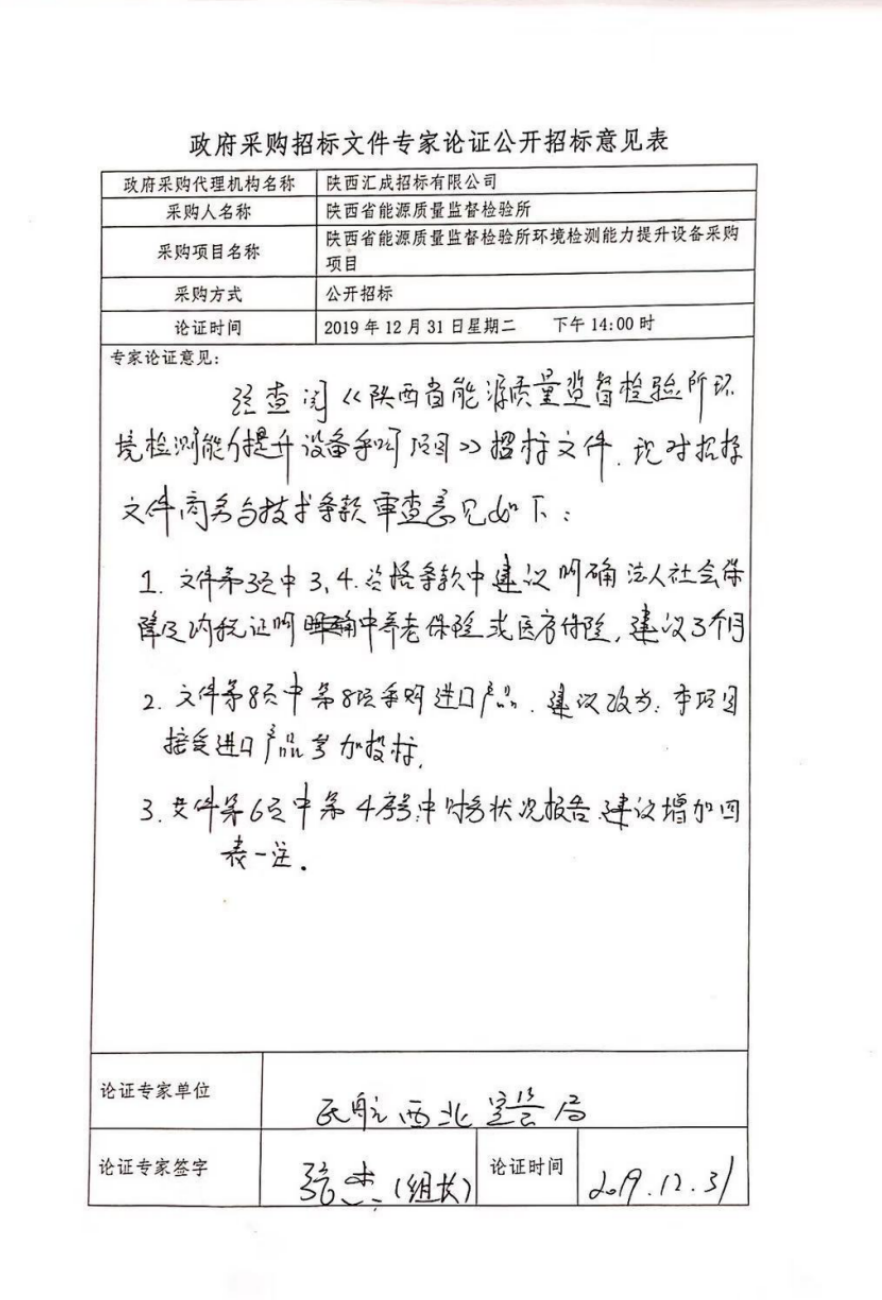 政府采购招标文件专家论证公开招标意见表
政府采购代理机构名称 陕西汇成招标有限公司
采购人名称 陕西省能源质量监督检验所
采购项目名称 陕西省能源质量监督检验所环境检测能力提升设备采购
项目
采购方式 公开招标
论证时间 2019年12月31日星期二 下午14:00时
专家论证意见:
经查阅《陕西省能源质量监督检验所环
境检测能力提升设备采购项目》招标文件.现对招标
文件商务与技术条款审查意见如下:
1. 文件第3页中3,4.资格条款中建议明确法人社会保
障及纳税证明 中养老保险或医疗保险,建议3个月
2. 文件第8页中第8项采购进口产品.建议改为:本项目
接受进口产品参加投标.
3. 文件第6页中第4序号中财务状况报告.建议增加四
表一注.
论证专家单位 民航西北空管局
论证专家签字 (组长) 论证时间 2019.12.31